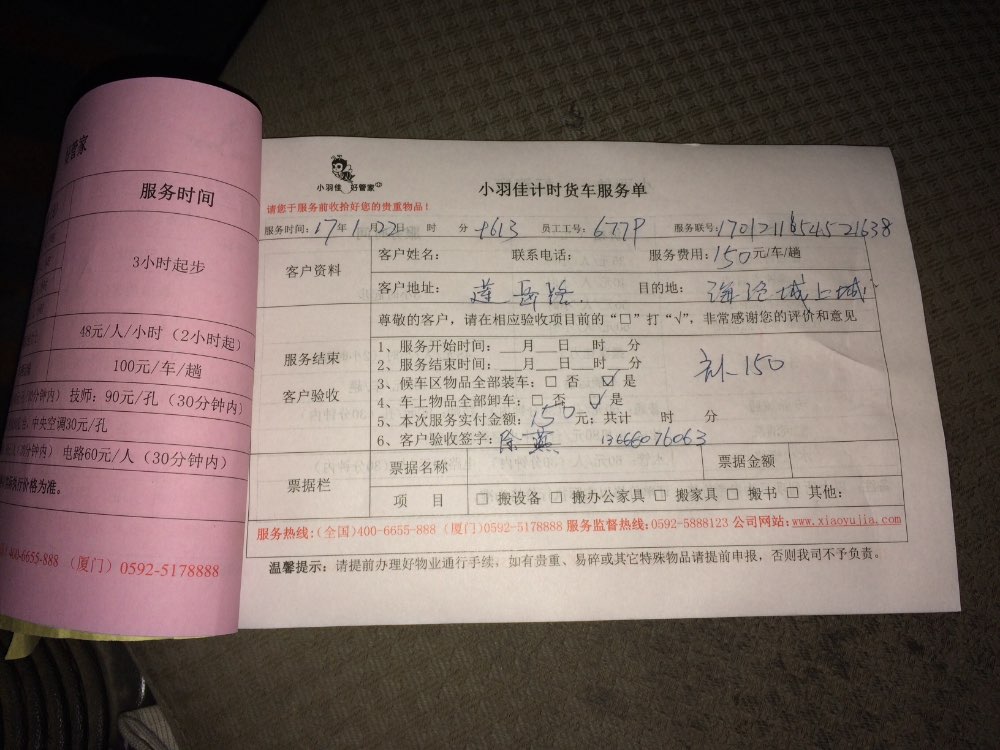 管家
服务时间
3小时起步
48元/人/小时（2小时起）
100元/车/趟
(30分钟内) 技师：90元/孔（30分钟内）
中央空调30元/孔
(30分钟内) 电路60元/人（30分钟内）
行价格为准。
400-6655-888 （厦门）0592-5178888
小羽佳 好管家
小羽佳计时货车服务单
请您于服务前收拾好您的贵重物品！
服务时间：17年1月22日 时 分 员工工号：6779 服务联号：
客户资料
客户姓名： 联系电话： 服务费用：150元/车/趟
客户地址：莲岳路 目的地：
尊敬的客户，请在相应验收项目前的“□”打“√”，非常感谢您的评价和意见
服务结束
客户验收
1、服务开始时间：___月___日___时___分
2、服务结束时间：___月___日___时___分
3、候车区物品全部装车：□ 否 ☑ 是
4、车上物品全部卸车：□ 否 ☑ 是
5、本次服务实付金额：150元；共计 时 分
6、客户验收签字：徐燕 13666076063
补150
票据栏
票据名称 票据金额
项 目 □ 搬设备 □ 搬办公家具 □ 搬家具 □ 搬书 □ 其他：
服务热线：(全国)400-6655-888 (厦门)0592-5178888 服务监督热线：0592-5888123 公司网站：www.xiaoyujia.com
温馨提示：请提前办理好物业通行手续，如有贵重、易碎或其它特殊物品请提前申报，否则我司不予负责。